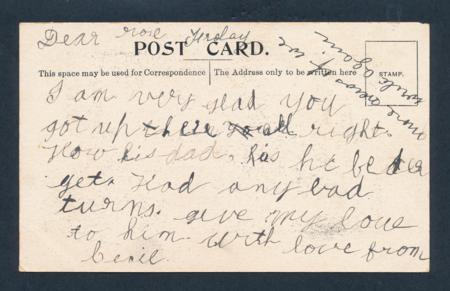 Dear rose Friday
POST CARD.
This space may be used for Correspondence The Address only to be written here
STAMP.
I am very glad you
got up there all right.
How is dad. his he better
get. Had any bad
turns. give my love
to him. With love from
Cecil.
write again